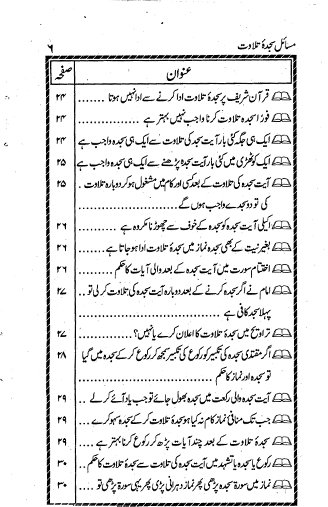 مسائل سجدۂ تلاوت ۶
عنوان صفحہ
قرآن شریف پر سجدۂ تلاوت ادا کرنے سے ادا نہیں ہوتا ........ ۲۴
فوراً سجدہ تلاوت کرنا واجب نہیں بہتر ہے ................ ۲۴
ایک ہی جگہ کئی بار آیت سجدہ کی تلاوت سے ایک ہی سجدہ واجب ہے ۲۴
ایک کوٹھڑی میں کئی بار آیت سجدہ پڑھنے سے ایک ہی سجدہ واجب ہے ۲۵
آیت سجدہ کی تلاوت کے بعد کسی اور کام میں مشغول ہو کر دوبارہ تلاوت . ۲۵
کی تو دو سجدے واجب ہوں گے ................
اکیلی آیت سجدہ کو سجدہ کے خوف سے چھوڑنا مکروہ ہے ........ ۲۶
بغیر نیت کے بھی سجدہ نماز میں سجدہ تلاوت ادا ہو جاتا ہے ...... ۲۶
اختتام سورت میں آیت سجدہ کے بعد والی آیات کا حکم ........ ۲۶
امام نے اگر سجدہ کرنے کے بعد دوبارہ آیت سجدہ کی تلاوت کر لی تو .. ۲۷
پہلا سجدہ کافی ہے ................
تراویح میں سجدۂ تلاوت کا اعلان کرے یا نہیں؟ ............ ۲۷
اگر مقتدی سجدہ کی تکبیر کو رکوع کی تکبیر سمجھ کر رکوع کر کے سجدہ میں گیا ۲۸
تو سجدہ اور نماز کا حکم ................
آیت سجدہ والی رکعت میں سجدہ بھول جائے تو جب یاد آئے کر لے .. ۲۹
جب تک منافی نماز کام نہ کیا ہو سجدۂ تلاوت کر کے سجدہ سہو کرے ... ۲۹
سجدۂ تلاوت کے بعد چند آیات پڑھ کر رکوع کرنا بہتر ہے ...... ۲۹
رکوع یا سجدہ یا تشہد میں آیت سجدہ کی تلاوت سے سجدۂ تلاوت کا حکم .. ۳۰
نماز میں سورۂ سجدہ پڑھی پھر نماز دہرانی پڑی پھر یہی سورۃ پڑھی تو .... ۳۰